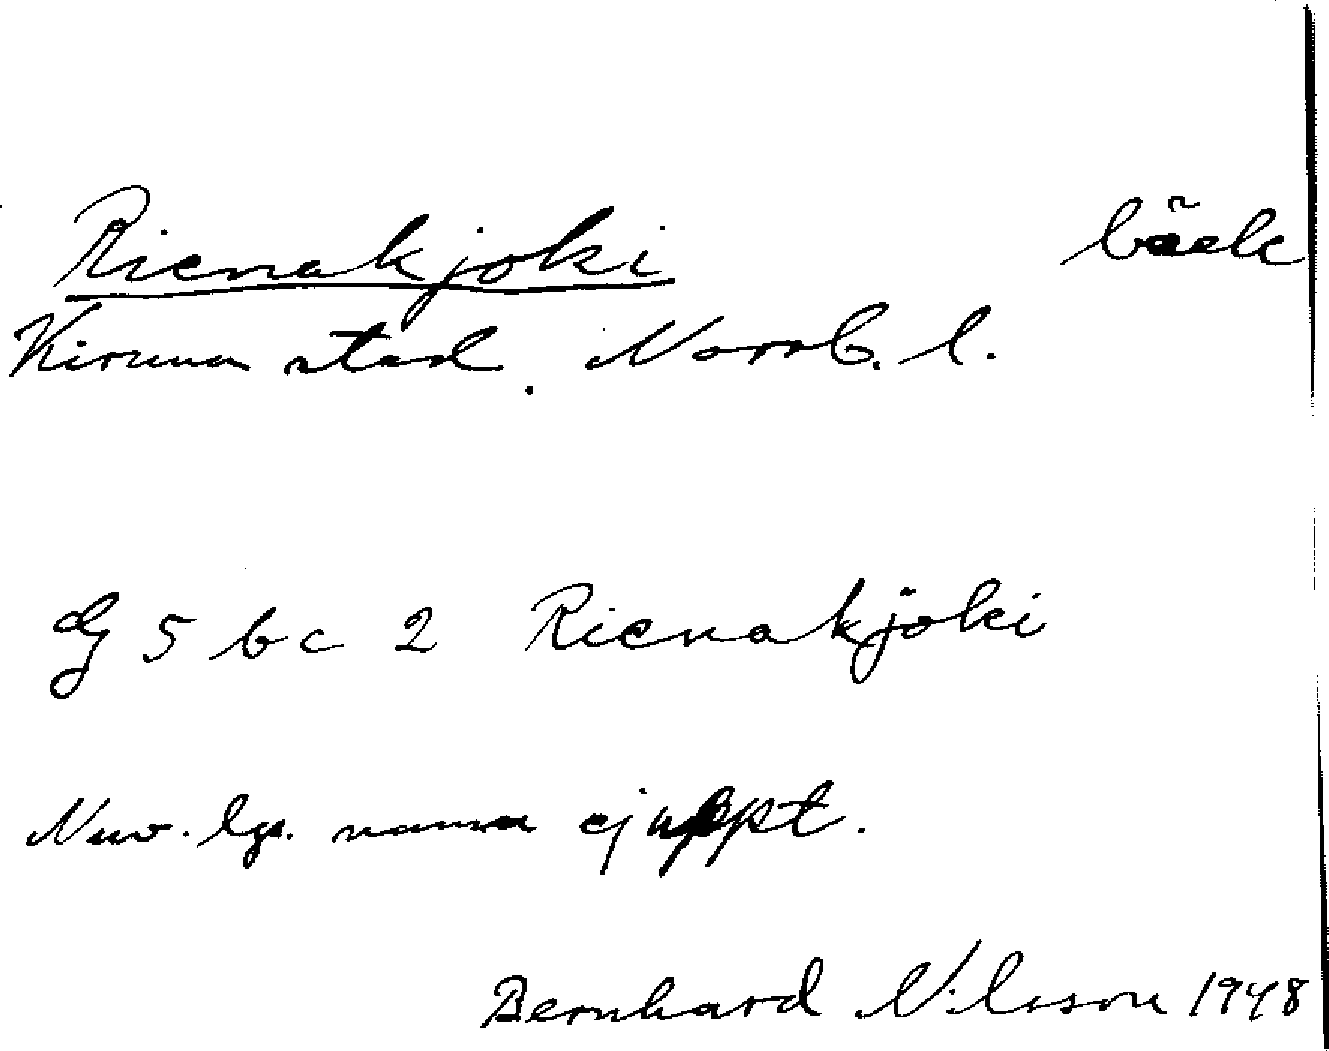 Rienakjoki bäck
Kiruna stad. Norrb. l.
G 5 b c 2 Rienakjåki
Nuv. lgs. namn ej uppt.
Bernhard Nilsson 1948